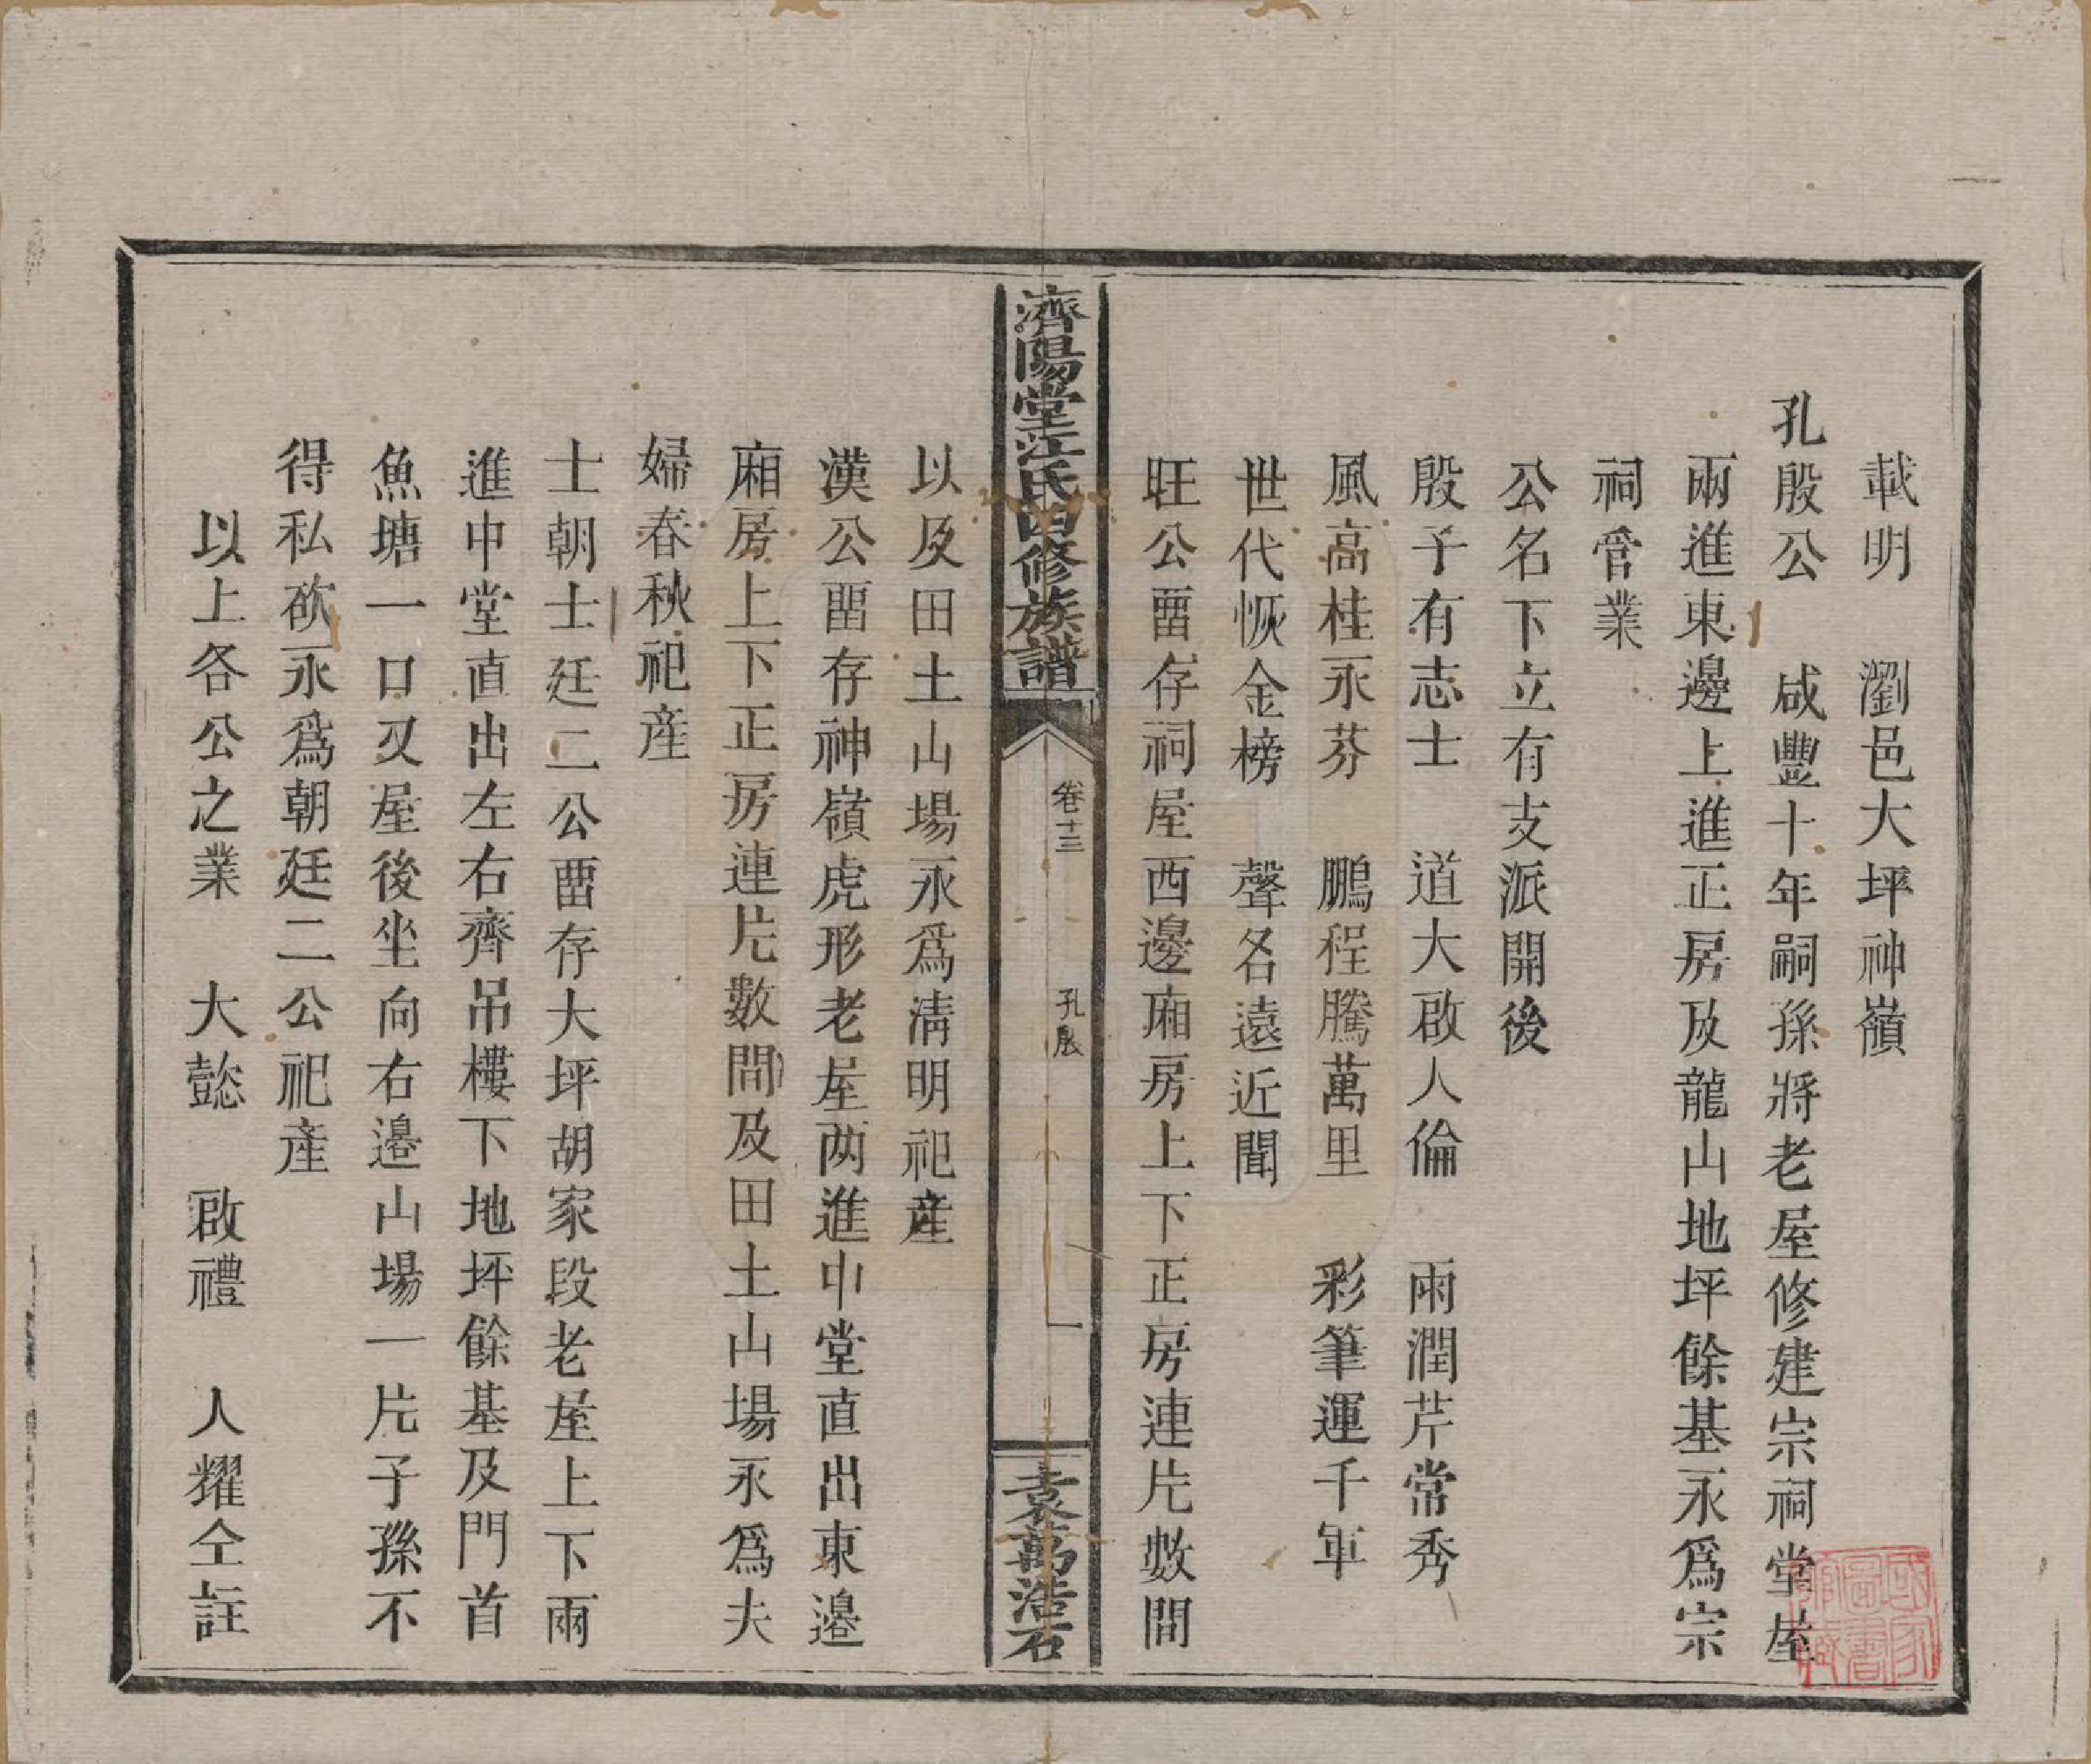 載明　瀏邑大坪神嶺
孔殷公　咸豐十年嗣孫將老屋修建宗祠堂屋
兩進東邊上進正房及龍山地坪餘基永爲宗
祠管業
公名下立有支派開後
殷予有志士　道大啟人倫　雨潤芹常秀
風高桂永芬　鵬程騰萬里　彩筆運千軍
世代恢金榜　聲名遠近聞
旺公畱存祠屋西邊廂房上下正房連片數間
濟陽堂江氏四修族譜
卷十三
孔殷
一
袁萬浩石
以及田土山場永爲淸明祀産
漢公畱存神嶺虎形老屋两進中堂直出東邉
廂房上下正房連片數間及田土山場永爲夫
婦春秋祀産
士朝士廷二公畱存大坪胡家段老屋上下兩
進中堂直出左右齊吊樓下地坪餘基及門首
魚塘一口又屋後坐向右邉山場一片子孫不
得私砍永爲朝廷二公祀産
以上各公之業　大懿　啟禮　人耀仝註
國家圖書館藏